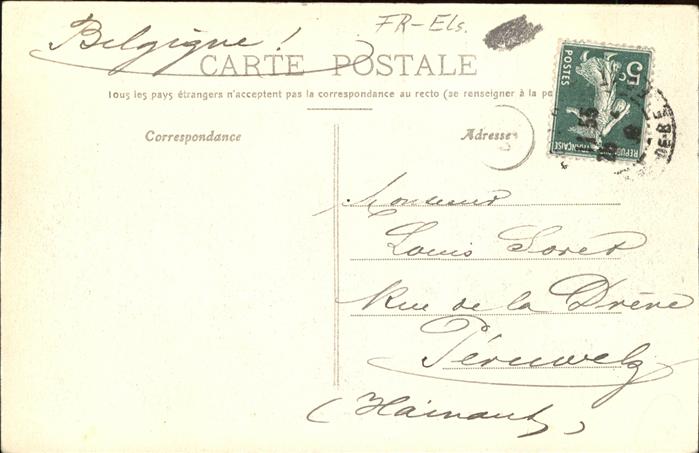 FR-Els.
Belgique!
CARTE POSTALE
Tous les pays étrangers n'acceptent pas la correspondance au recto (se renseigner à la po
Correspondance
Adresse
5c
POSTES
Monsieur
Louis Soret
Rue de la Drève
Péruwelz
(Hainaut)